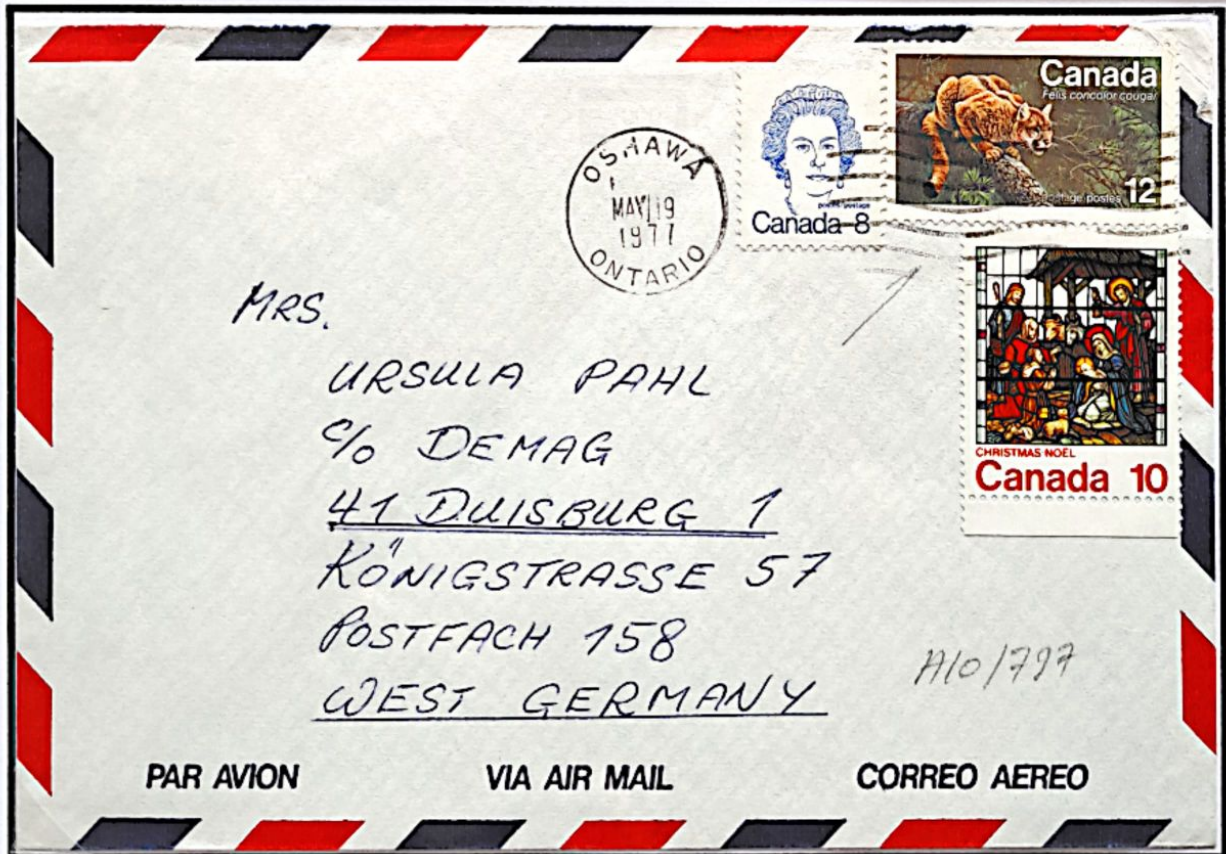 OSHAWA
MAY 19
1977
ONTARIO
postes postage
Canada 8
Canada
Felis concolor cougar
postage postes 12
CHRISTMAS NOËL
Canada 10
MRS.
URSULA PAHL
c/o DEMAG
41 DUISBURG 1
KÖNIGSTRASSE 57
POSTFACH 158
WEST GERMANY
PAR AVION
VIA AIR MAIL
CORREO AEREO